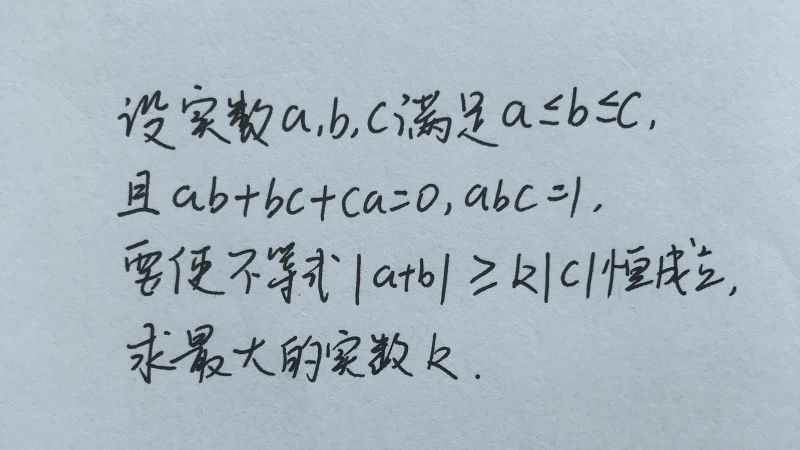 设实数a,b,c满足a≤b≤c,
且ab+bc+ca=0,abc=1.
要使不等式|a+b|≥k|c|恒成立,
求最大的实数k.